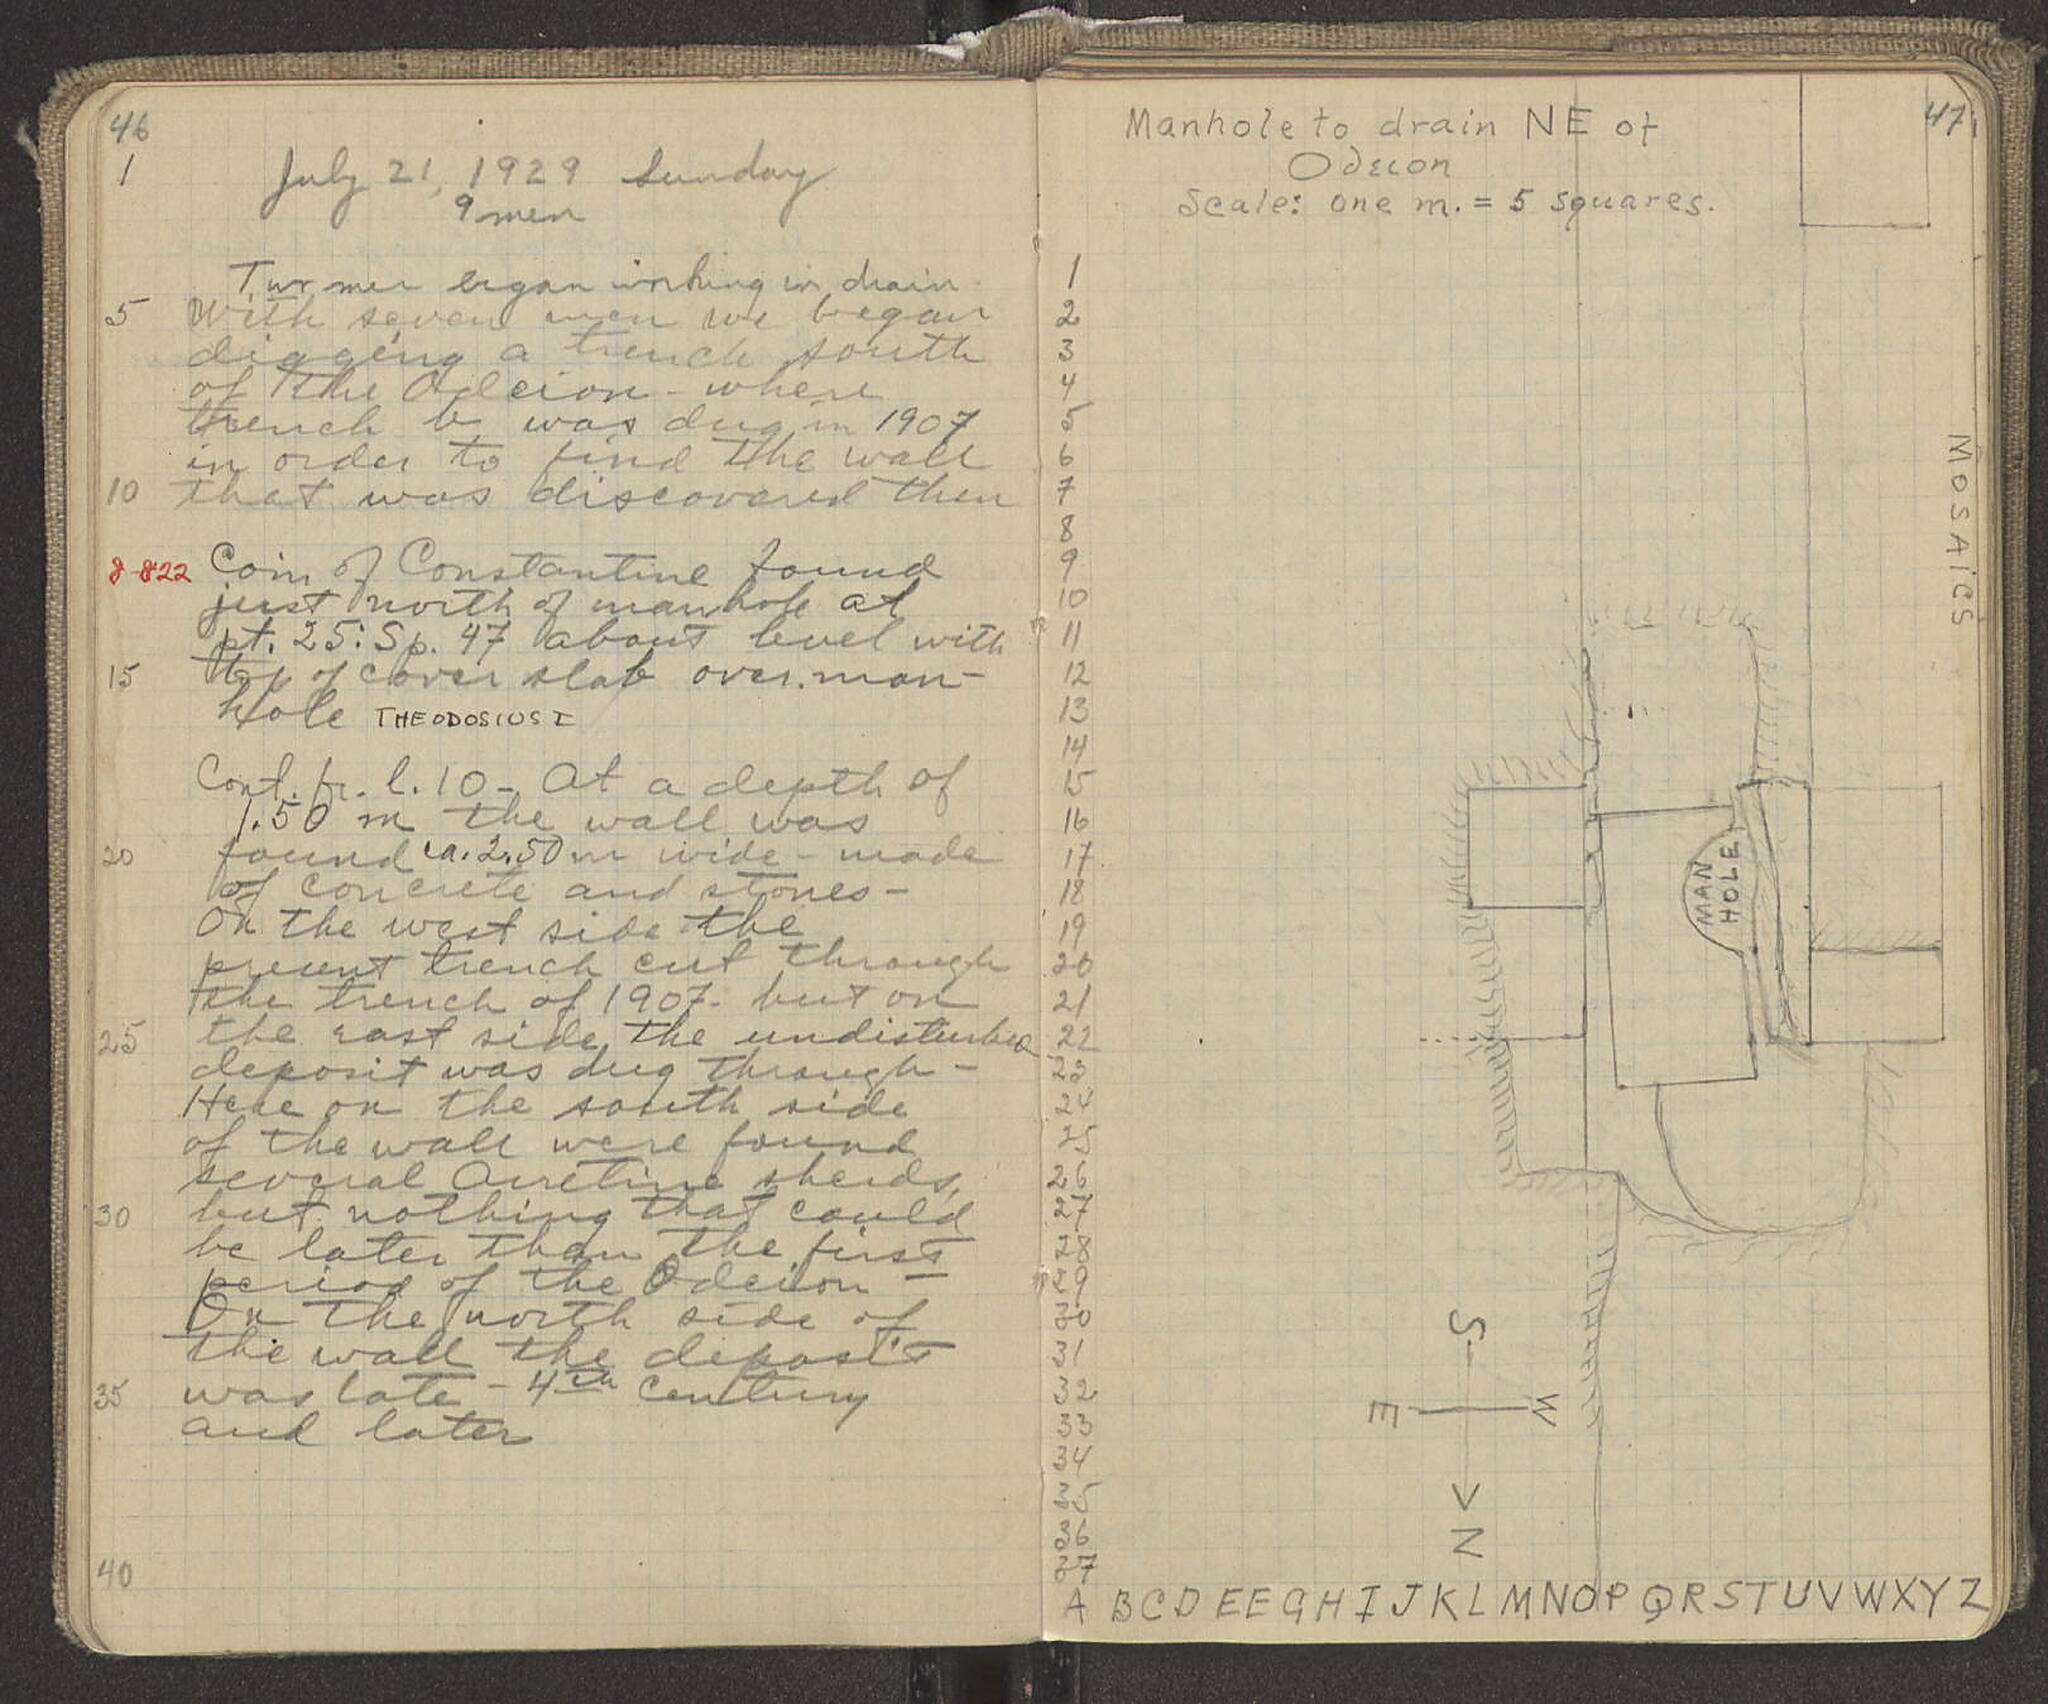 46
1 July 21, 1929 Sunday
9 men
Two men began working in drain.
5 With seven men we began
digging a trench south
of the Odeion - where
trench b was dug in 1907
in order to find the wall
10 that was discovered then
8-822 Coin of Constantine found
just north of manhole at
pt. 25:S p. 47 about level with
15 top of cover slab over man-
hole THEODOSIUS I
Cont. fr. l. 10 - At a depth of
1.50 m the wall was
20 found ca. 2.50 m wide - made
of concrete and stones -
On the west side the
present trench cut through
the trench of 1907 - but on
25 the east side the undisturbed
deposit was dug through -
Here on the south side
of the wall were found
several Arretine sherds,
30 but nothing that could
be later than the first
period of the Odeion -
On the north side of
the wall the deposit
35 was late - 4th century
and later
40
47
Manhole to drain NE of
Odeion
Scale: one m. = 5 squares.
1
2
3
4
5
6
7
8
9
10
11
12
13
14
15
16
17
18
19
20
21
22
23
24
25
26
27
28
29
30
31
32
33
34
35
36
37
MOSAICS
MAN
HOLE
S
E W
N
A B C D E E G H I J K L M N O P Q R S T U V W X Y Z